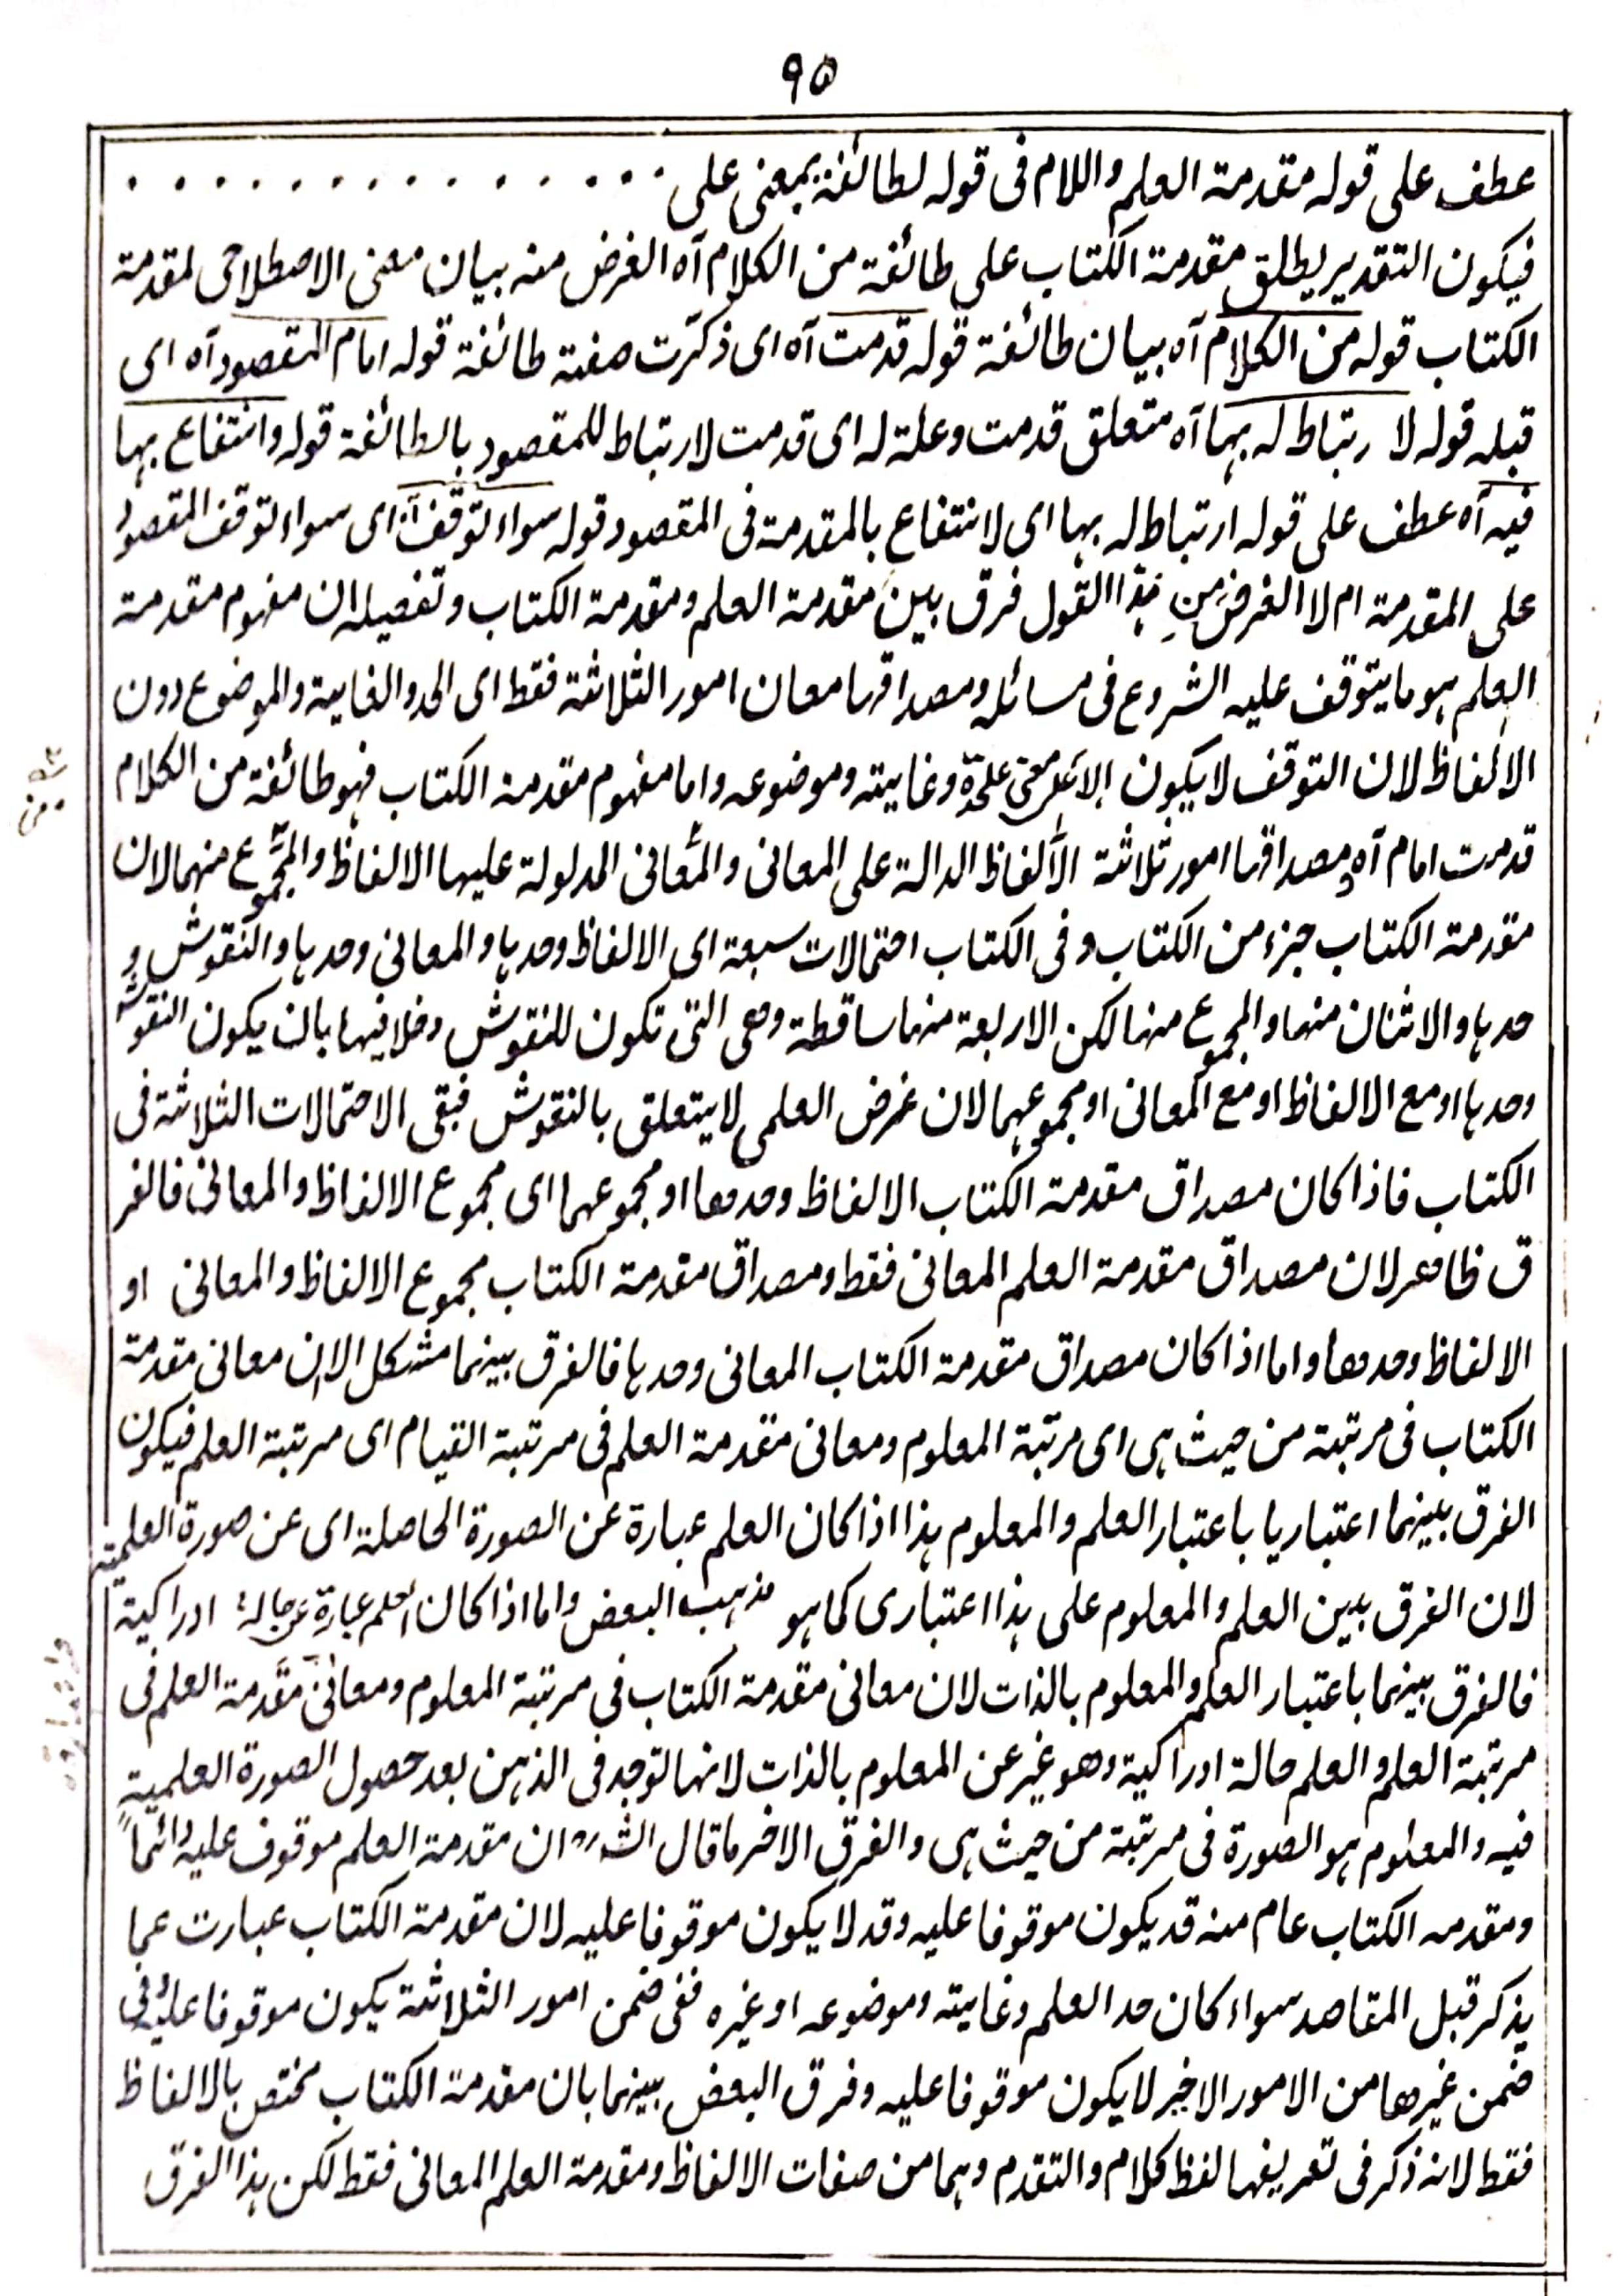 ٩٥
عطف على قوله مقدمة العلم واللام فى قوله لطائفة بمعنى على . . . . . . . . . . . . . . .
فيكون التقدير يطلق مقدمة الكتاب على طائفة من الكلام آه الغرض منه بيان معنى الاصطلاحى لمقدمة
الكتاب قوله من الكلام آه بيان طائفة قوله قدمت آه اى ذكرت صفة طائفة قوله امام المقصود آه اى
قبله قوله لا رتباط له بها آه متعلق قدمت وعلة له اى قدمت لارتباط للمقصود بالطائفة قوله وانتفاع بها
فيه آه عطف على قوله ارتباط له بها اى لانتفاع بالمقدمة فى المقصود قوله سواء توقف آه اى سواء توقف المقصود
على المقدمة ام لا الغرض من هذا القول فرق بين مقدمة العلم ومقدمة الكتاب وتفصيله ان مفهوم مقدمة
العلم هو ما يتوقف عليه الشروع فى مسائله ومصداقها معان امور الثلاثة فقط اى الحد والغاية والموضوع دون
الالفاظ لان التوقف لا يكون الا على معنى حده وغايته وموضوعه واما مفهوم مقدمة الكتاب فهو طائفة من الكلام
قدمت امام آه ومصداقها امور ثلاثة الالفاظ الدالة على المعانى والمعانى المدلولة عليها الالفاظ والمجموع منهما لان
مقدمة الكتاب جزء من الكتاب و فى الكتاب احتمالات سبعة اى الالفاظ وحدها والمعانى وحدها والنقوش و
حدها والاثنان منهما والمجموع منها لكن الاربعة منها ساقطة وهى التى تكون للنقوش دخلا فيها بان يكون النقوش
وحدها او مع الالفاظ او مع المعانى او مجموعهما لان غرض العلمى لا يتعلق بالنقوش فبقى الاحتمالات الثلاثة فى
الكتاب فاذا كان مصداق مقدمة الكتاب الالفاظ وحدها او مجموعهما اى مجموع الالفاظ والمعانى فالفر
ق ظاهر لان مصداق مقدمة العلم المعانى فقط ومصداق مقدمة الكتاب مجموع الالفاظ والمعانى او
الالفاظ وحدها واما اذا كان مصداق مقدمة الكتاب المعانى وحدها فالفرق بينهما مشكل الا ان معانى مقدمة
الكتاب فى مرتبة من حيث هى اى مرتبة المعلوم ومعانى مقدمة العلم فى مرتبة القيام اى مرتبة العلم فيكون
الفرق بينهما اعتباريا باعتبار العلم والمعلوم هذا اذا كان العلم عبارة عن الصورة الحاصلة اى عن صورة العلمية
لان الفرق بين العلم والمعلوم على هذا اعتبارى كما هو مذهب البعض واما اذا كان العلم عبارة عن حالة ادراكية
فالفرق بينهما باعتبار العلم والمعلوم بالذات لان معانى مقدمة الكتاب فى مرتبة المعلوم ومعانى مقدمة العلم فى
مرتبة العلم والعلم حالة ادراكية وهو غير عن المعلوم بالذات لانها توجد فى الذهن بعد حصول الصورة العلمية
فيه والمعلوم هو الصورة فى مرتبة من حيث هى والفرق الاخر ما قال الش ره ان مقدمة العلم موقوف عليه دائماً
ومقدمه الكتاب عام منه قد يكون موقوفا عليه وقد لا يكون موقوفا عليه لان مقدمة الكتاب عبارت عما
يذكر قبل المقاصد سواء كان حد العلم وغايته وموضوعه او غيره ففى ضمن امور الثلاثة يكون موقوفا عليه وفى
ضمن غيرها من الامور الاخير لا يكون موقوفا عليه وفرق البعض بينهما بان مقدمة الكتاب مختص بالالفاظ
فقط لانه ذكر فى تعريفها لفظ كلام والتقدم وهما من صفات الالفاظ ومقدمة العلم المعانى فقط لكن هذا الفرق